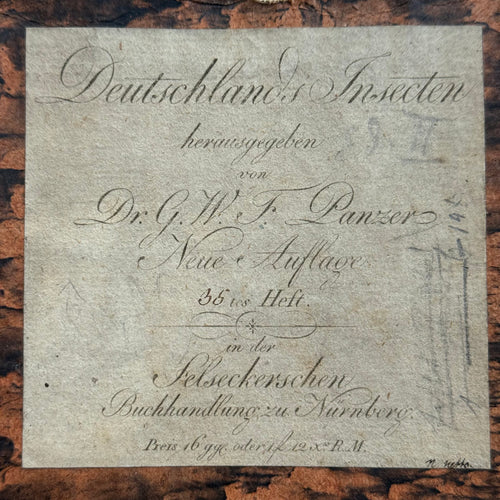 Deutschlands Insecten
herausgegeben
von
Dr. G. W. F. Panzer
Neue Auflage
35tes Heft.
in der
Felseckerschen
Buchhandlung zu Nürnberg.
Preis 16 ggr. oder 1 fl 12 Xr R. M.